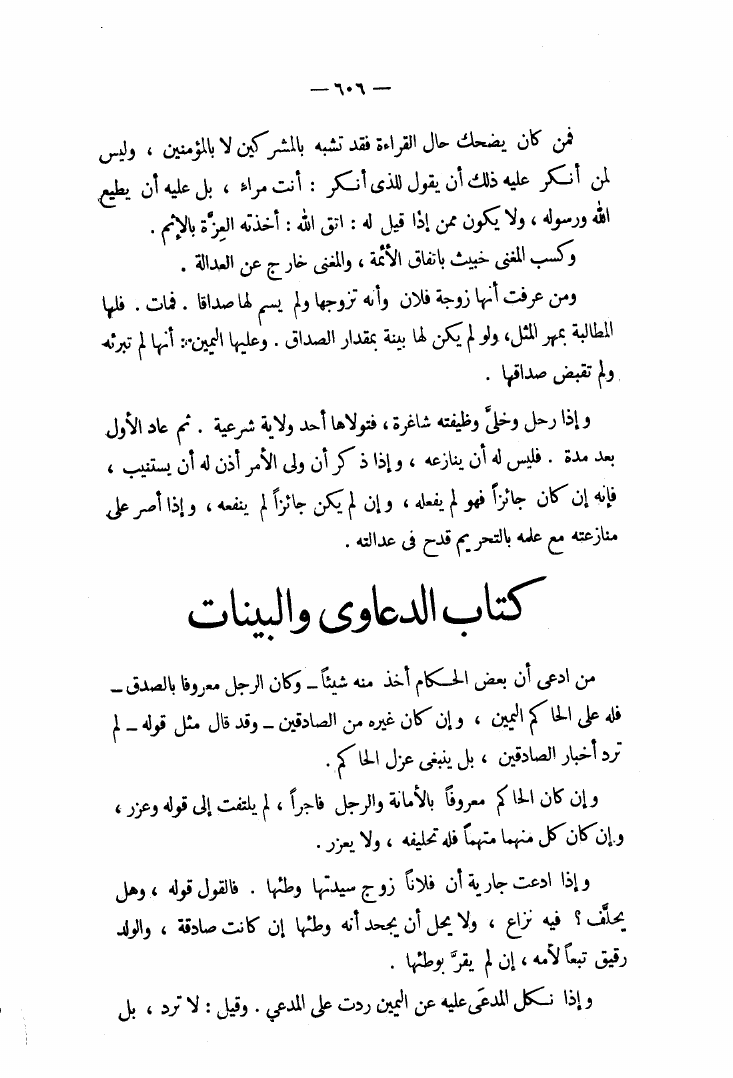 — ٦٠٦ —
فمن كان يضحك حال القراءة فقد تشبه بالمشركين لا بالمؤمنين ، وليس
لمن أنكر عليه ذلك أن يقول للذى أنكر : أنت مراء ، بل عليه أن يطيع
الله ورسوله ، ولا يكون ممن إذا قيل له : اتق الله : أخذته العِزَّة بالإثم .
وكسب المغنى خبيث باتفاق الأئمة ، والمغنى خارج عن العدالة .
ومن عرفت أنها زوجة فلان وأنه تزوجها ولم يسم لها صداقا . فمات . فلها
المطالبة بمهر المثل، ولو لم يكن لها بينة بمقدار الصداق . وعليها اليمين : أنها لم تبرئه
ولم تقبض صداقها .
وإذا رحل وخلىَّ وظيفته شاغرة ، فتولاها أحد ولاية شرعية . ثم عاد الأول
بعد مدة . فليس له أن ينازعه ، وإذا ذكر أن ولى الأمر أذن له أن يستنيب ،
فإنه إن كان جائزاً فهو لم يفعله ، وإن لم يكن جائزاً لم ينفعه ، وإذا أصر على
منازعته مع علمه بالتحريم قدح فى عدالته .
كتاب الدعاوى والبينات
من ادعى أن بعض الحكام أخذ منه شيئاً ــ وكان الرجل معروفا بالصدق ــ
فله على الحاكم اليمين ، وإن كان غيره من الصادقين ــ وقد قال مثل قوله ــ لم
ترد أخبار الصادقين ، بل ينبغى عزل الحاكم .
وإن كان الحاكم معروفاً بالأمانة والرجل فاجراً ، لم يلتفت إلى قوله وعزر ،
وإن كان كل منهما متهماً فله تحليفه ، ولا يعزر .
وإذا ادعت جارية أن فلاناً زوج سيدتها وطئها . فالقول قوله ، وهل
يحلَّف ؟ فيه نزاع ، ولا يحل أن يجحد أنه وطئها إن كانت صادقة ، والولد
رقيق تبعاً لأمه ، إن لم يقرَّ بوطئها .
وإذا نكل المدعَى عليه عن اليمين ردت على المدعي . وقيل : لا ترد ، بل